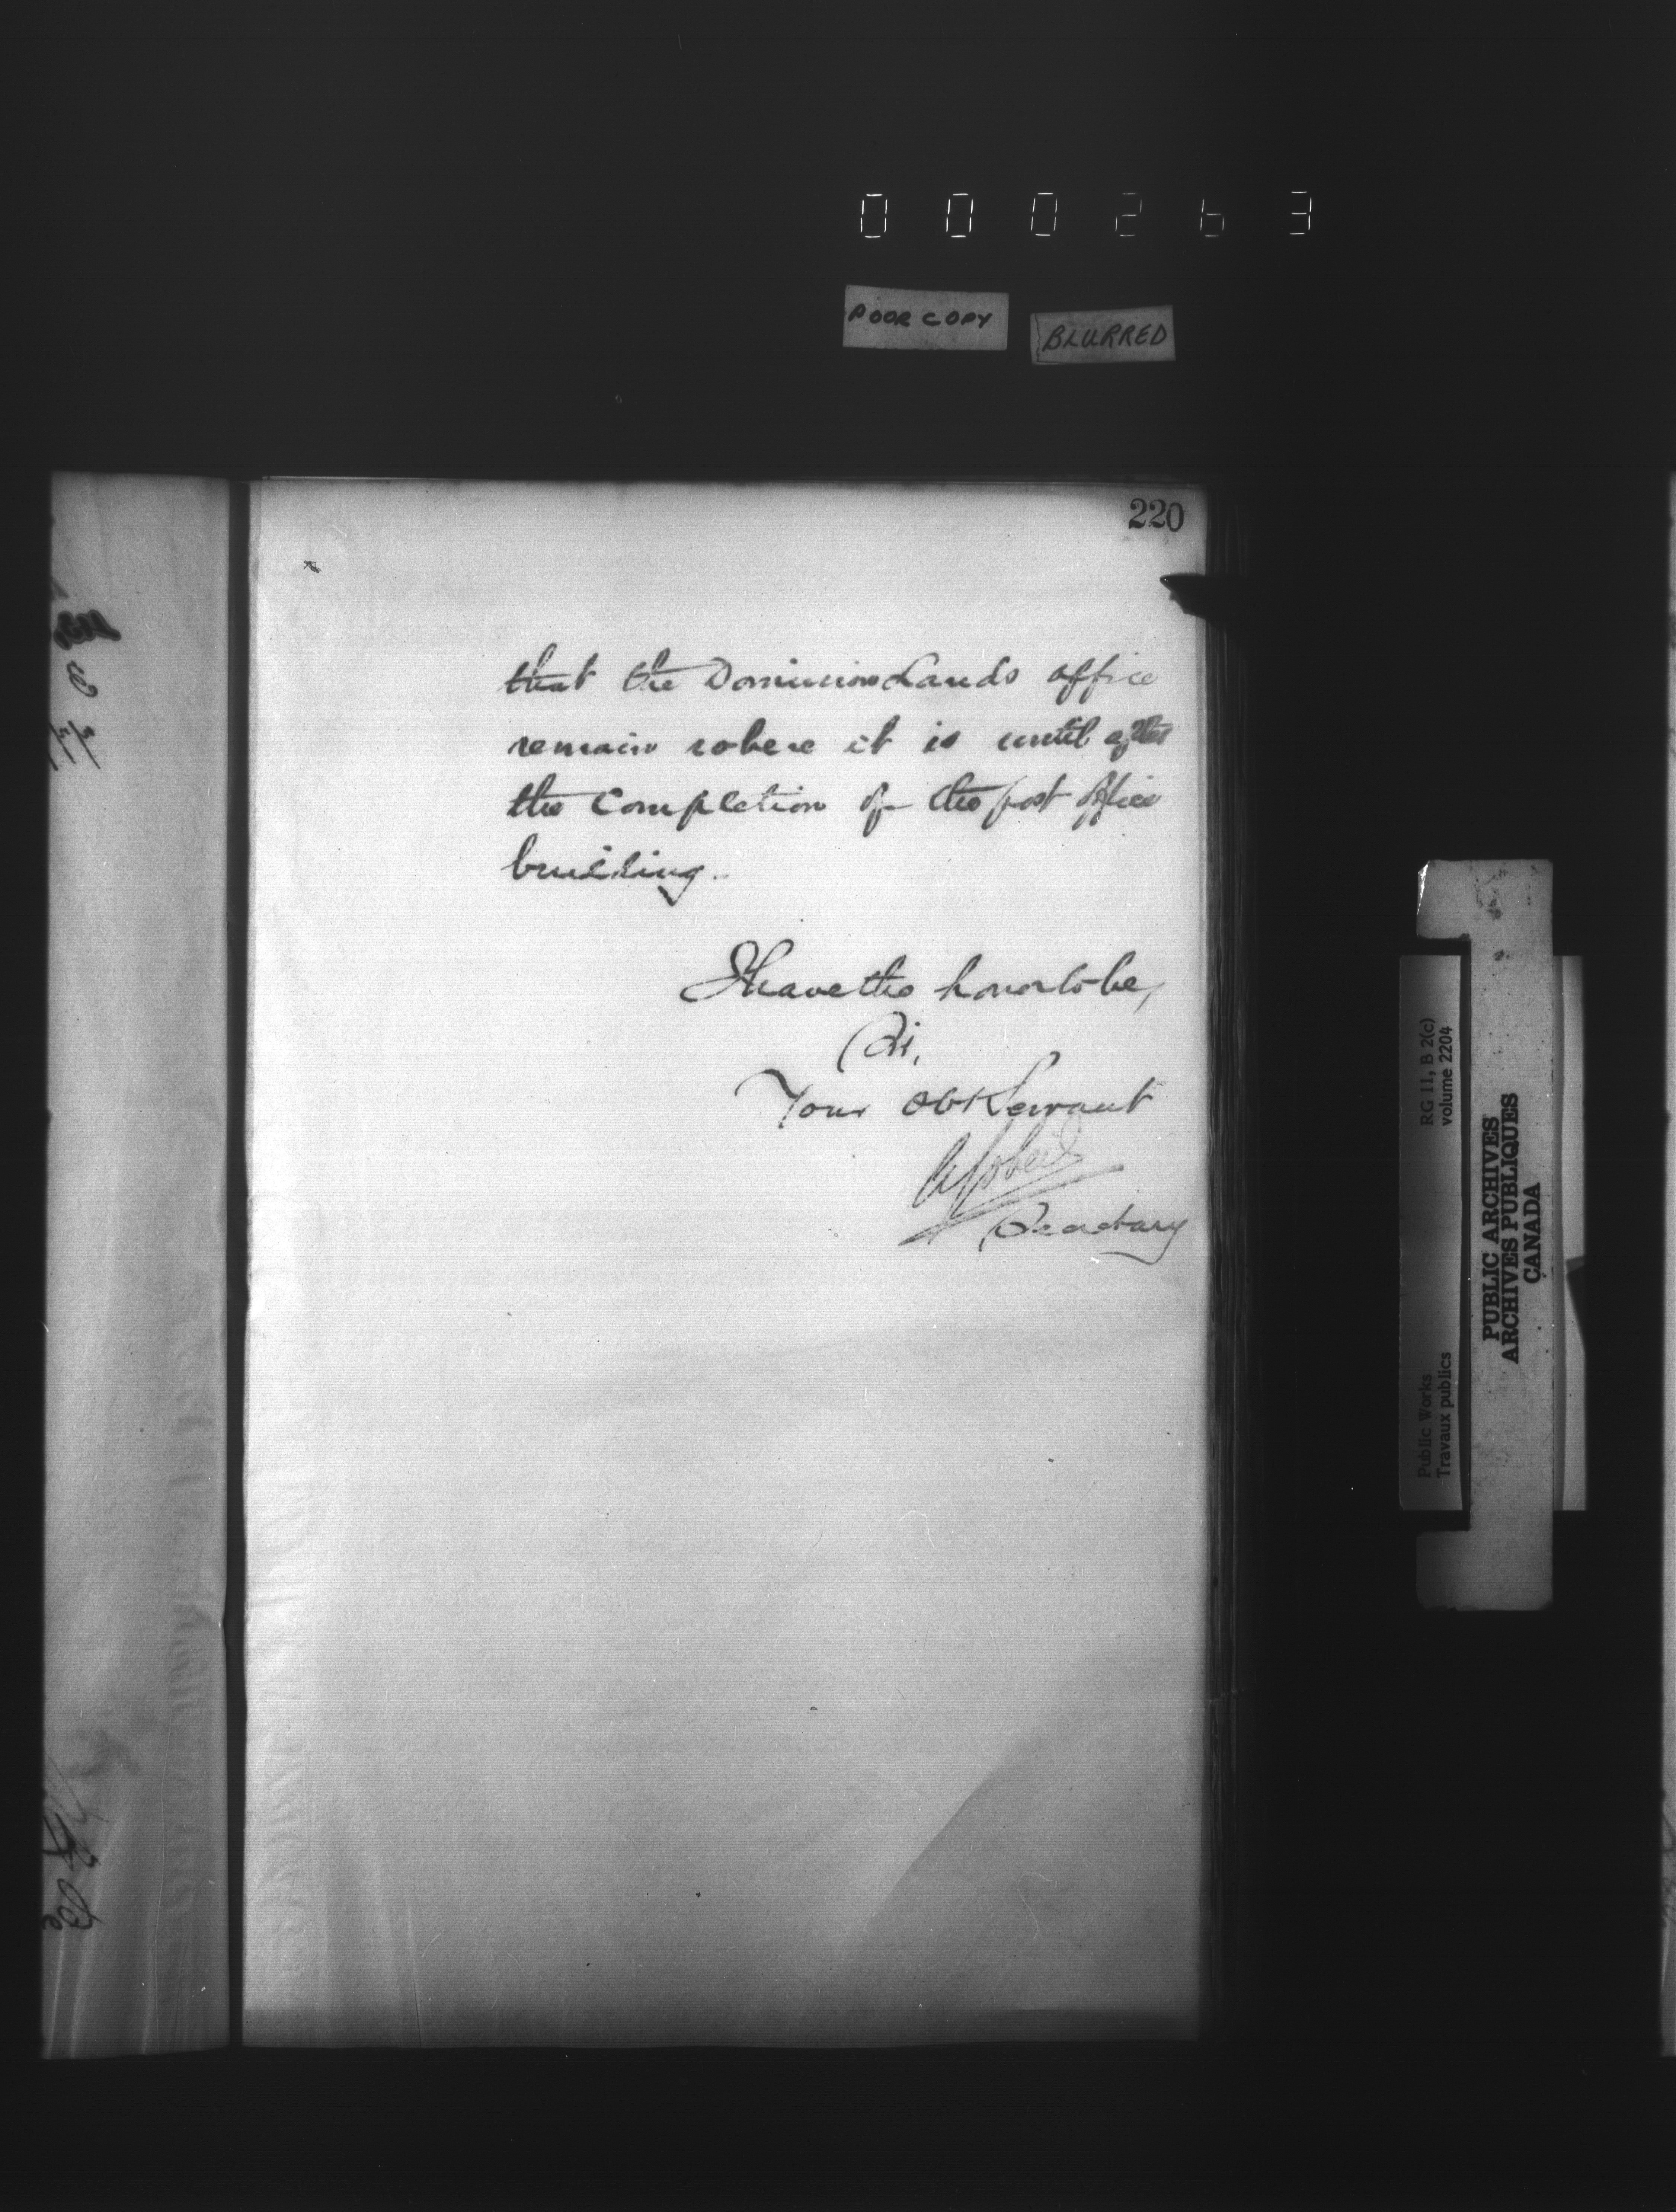 000263
POOR COPY
BLURRED
220
that the Dominion Lands office
remain where it is until after
the Completion of the post office
building.
I have the honor to be,
Sir,
Your Obt Servant
A Gobeil
Secretary
Public Works
Travaux publics
RG 11, B 2(c)
volume 2204
PUBLIC ARCHIVES
ARCHIVES PUBLIQUES
CANADA